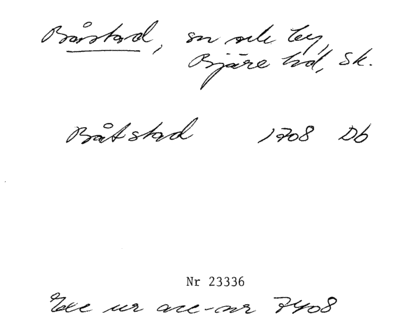 Båstad, sn och by,
Bjäre hd, Sk.
Båtstad 1708 Db
Nr 23336
Exc ur acc-nr 7408